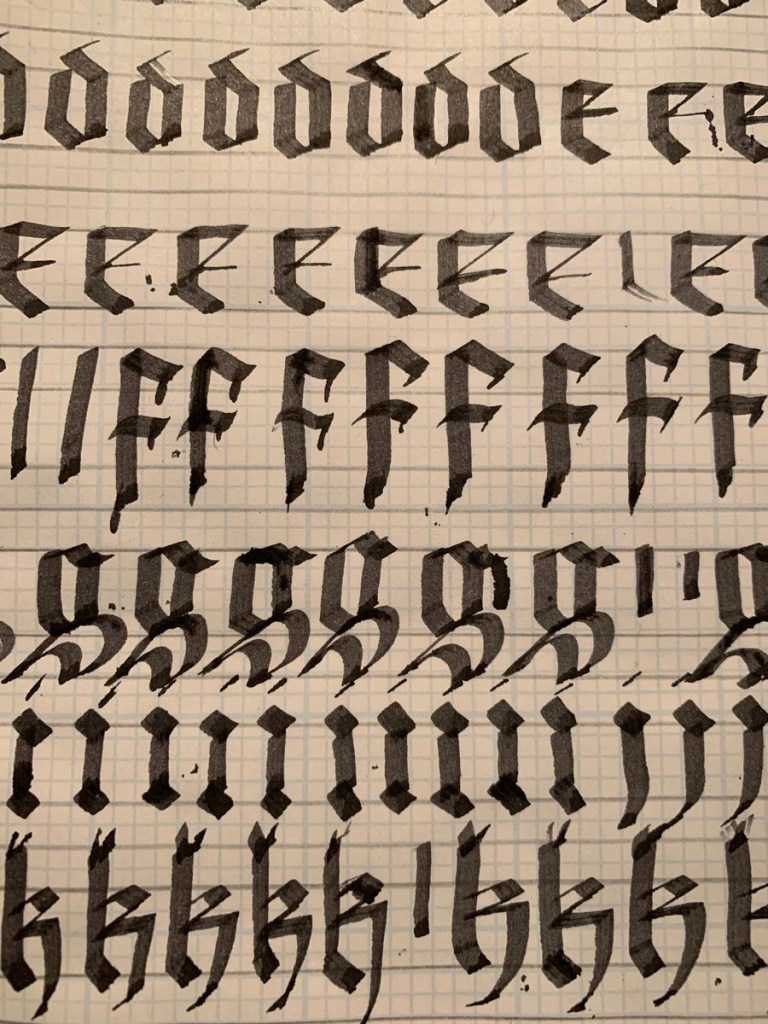 dddddddd e e e
e e e e e e e e
f f f f f f f f
g g g g g g g
i i i i i i i i i i j j j
k k k k k k k k k